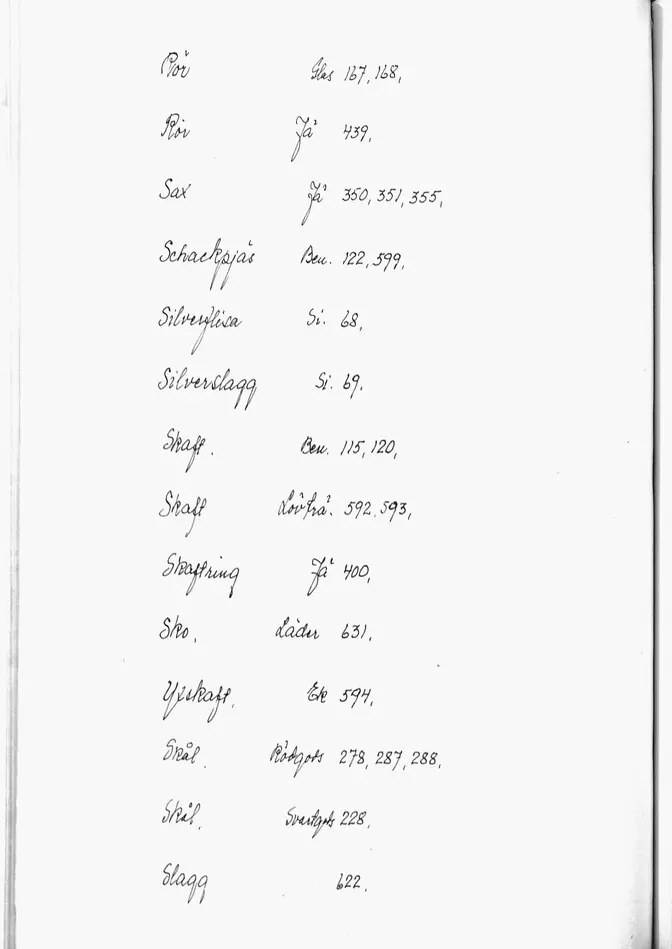 Rör Glas 167, 168,
Rör Jä 439,
Sax Jä 350, 351, 355,
Schackpjäs Ben. 122, 599,
Silverflisa Si. 68,
Silverslagg Si. 69,
Skaft. Ben. 115, 120,
Skaft Lövträ. 592. 593,
Skaftring Jä 400,
Sko, Läder 631,
Yxskaft, Ek 594,
Skål. Rödgods 278, 287, 288,
Skål, Svartgods 228,
Slagg 622,